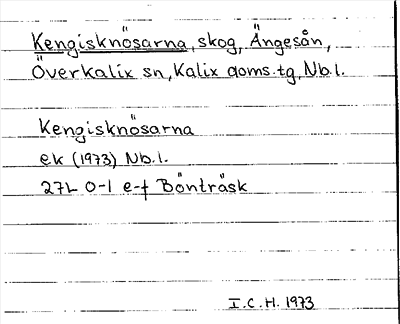 Kengisknösarna, skog, Ängesån,
Överkalix sn, Kalix doms.tg, Nb.l.
Kengisknösarna
ek (1973) Nb.l.
27L 0-1 e-f Bönträsk
I.C.H. 1973